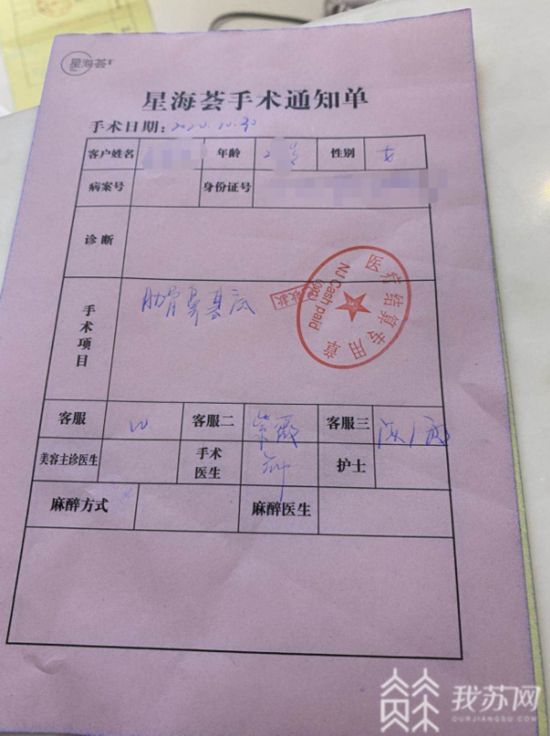 星海荟
星海荟手术通知单
手术日期: 2020.10.30
客户姓名 年龄 性别 女
病案号 身份证号
诊断
手术项目 肋骨鼻基底
医疗结算专用章
NJ Cash paid
客服 客服二 紫薇 客服三
美容主诊医生 手术医生 护士
麻醉方式 麻醉医生
我苏网
OURJIANGSU.COM